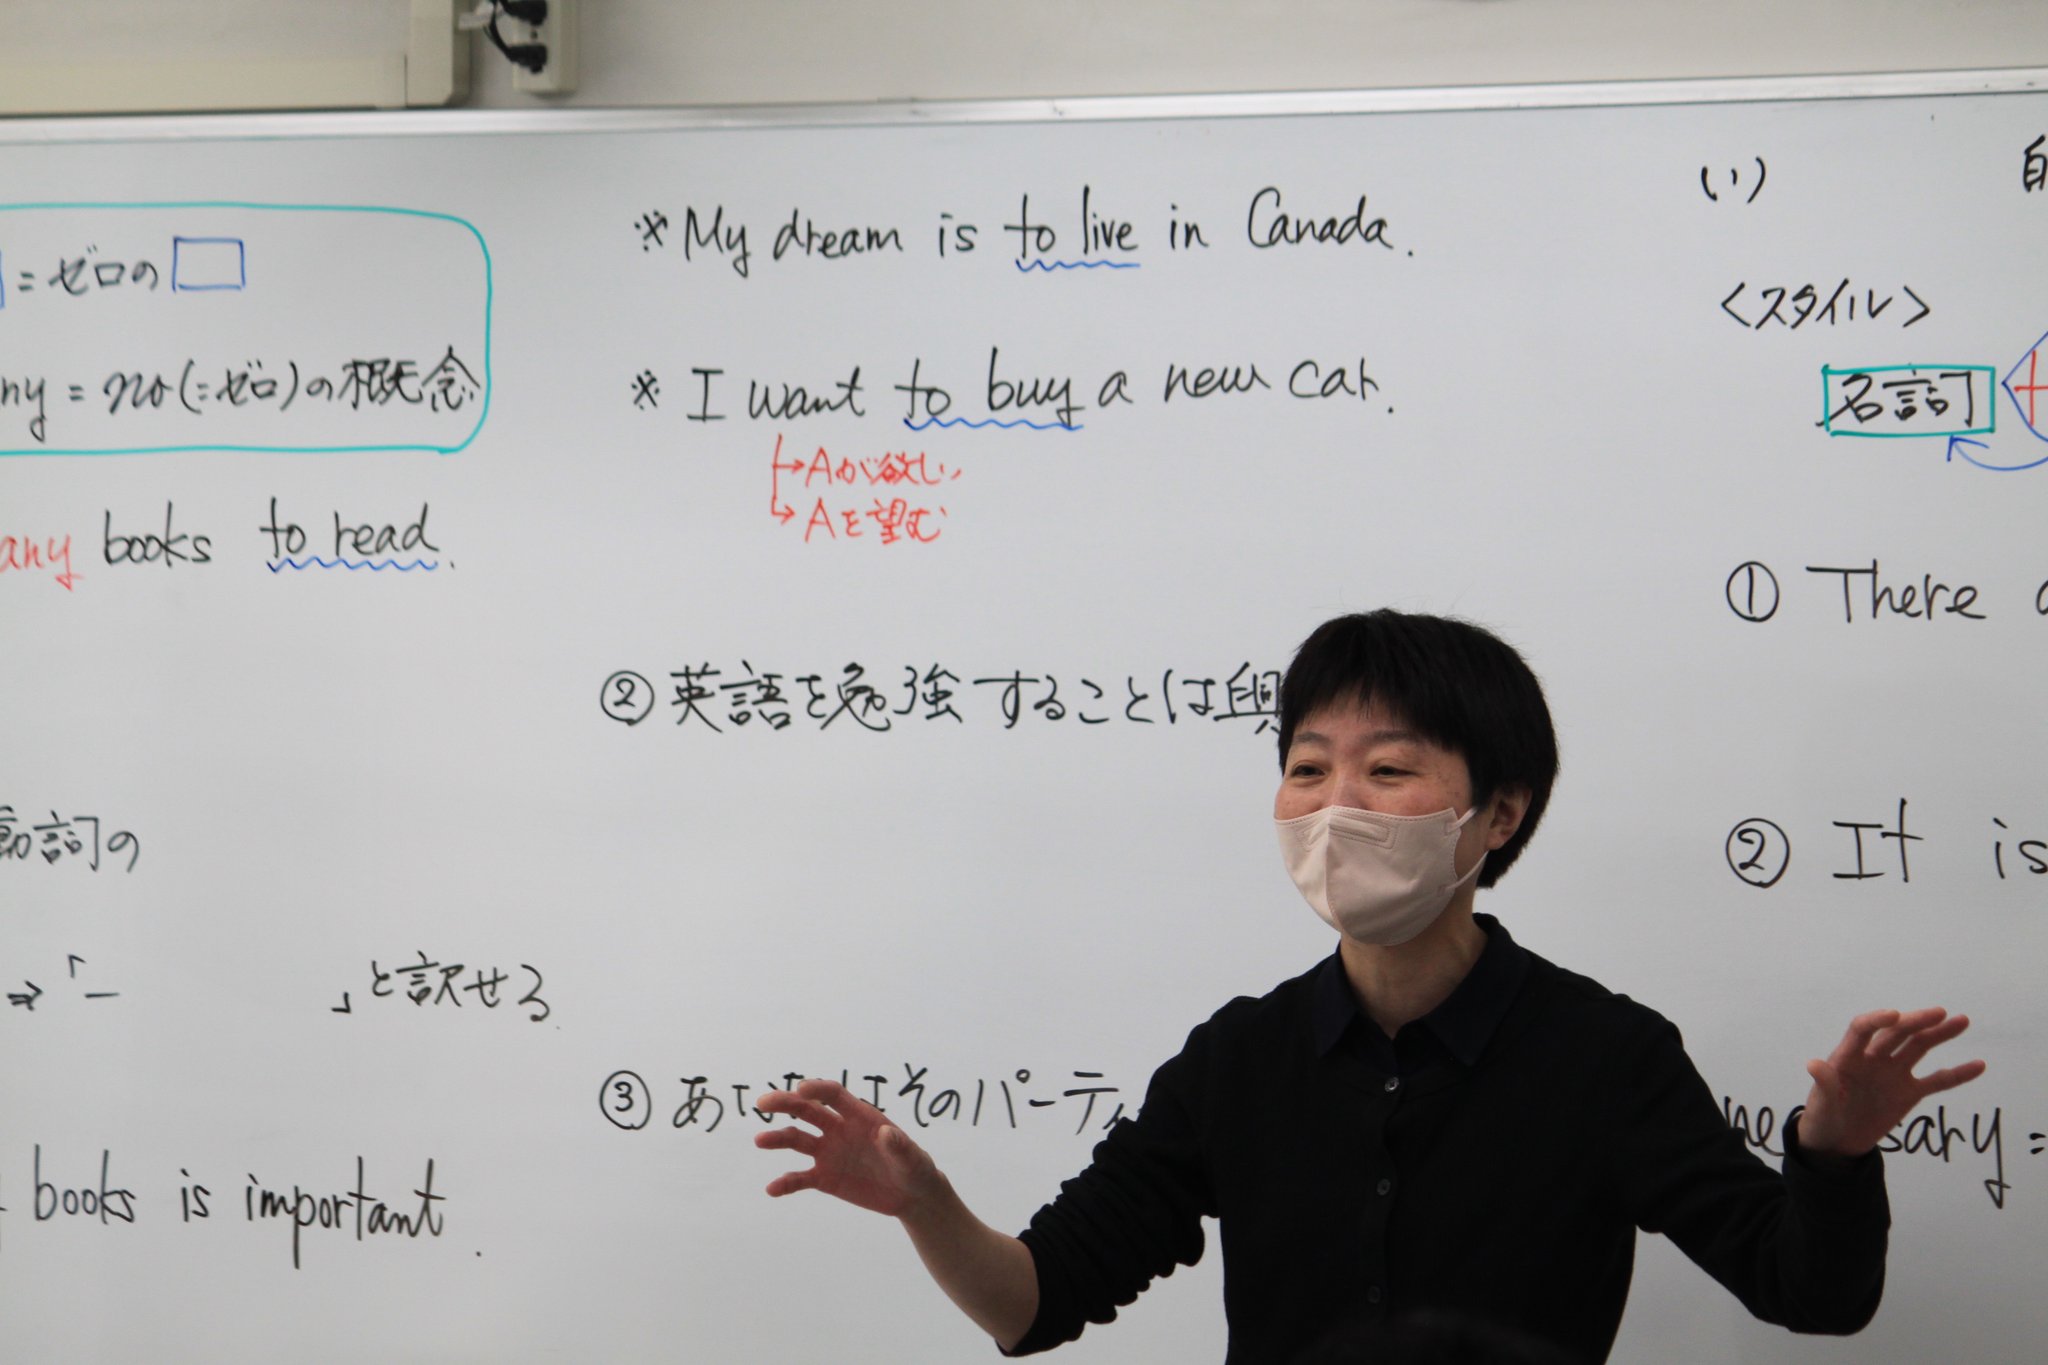 = ゼロの
ny = no (= ゼロ) の概念
any books to read.
動詞の
⇒ 「― 」と訳せる
books is important.
※ My dream is to live in Canada.
※ I want to buy a new car.
→ Aが欲しい
→ Aを望む
② 英語を勉強することは興
③ あなたはそのパーティ
(い)
自
<スタイル>
名詞
① There
② It is
necessary =